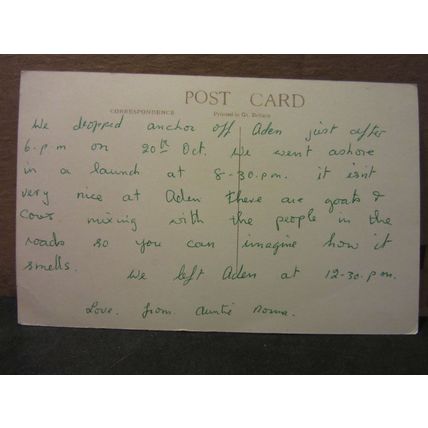 POST CARD
CORRESPONDENCE Printed in Gt. Britain
We dropped anchor off Aden just after
6.p.m on 20th Oct. We went ashore
in a launch at 8-30.p.m. it isnt
very nice at Aden there are goats &
cows mixing with the people in the
roads so you can imagine how it
smells. We left Aden at 12-30.p.m.
Love. from Auntie Norma.